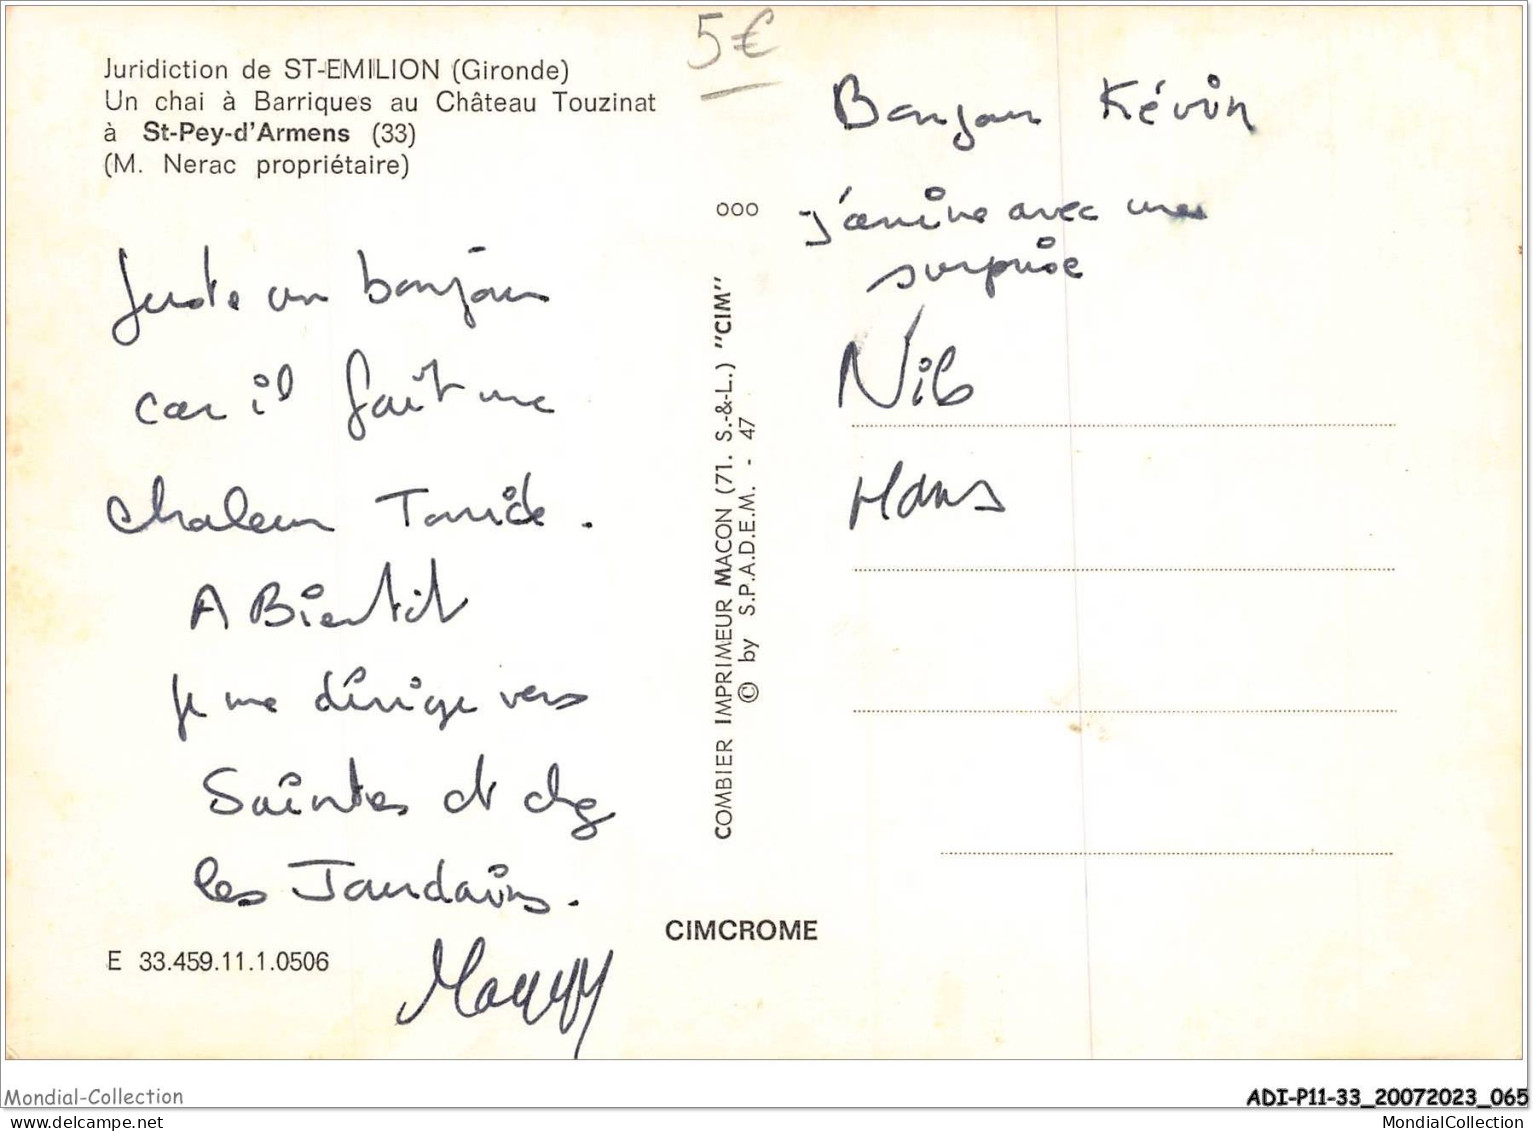 5€
Juridiction de ST-EMILION (Gironde)
Un chai à Barriques au Château Touzinat
à St-Pey-d'Armens (33)
(M. Nerac propriétaire)
Juste un bonjour
car il fait une
chaleur Torride.
A Bientôt
Je me dirige vers
Saintes et chez
les Jaudains.
Maggy
E 33.459.11.1.0506
COMBIER IMPRIMEUR MACON (71. S.-&-L.) "CIM"
© by S.P.A.D.E.M. - 47
CIMCROME
000
Bonjour Kévin
J'arrive avec une
surprise
Nib
Mans
Mondial-Collection
mondialcollection.delcampe.net
ADI-P11-33_20072023_065
MondialCollection